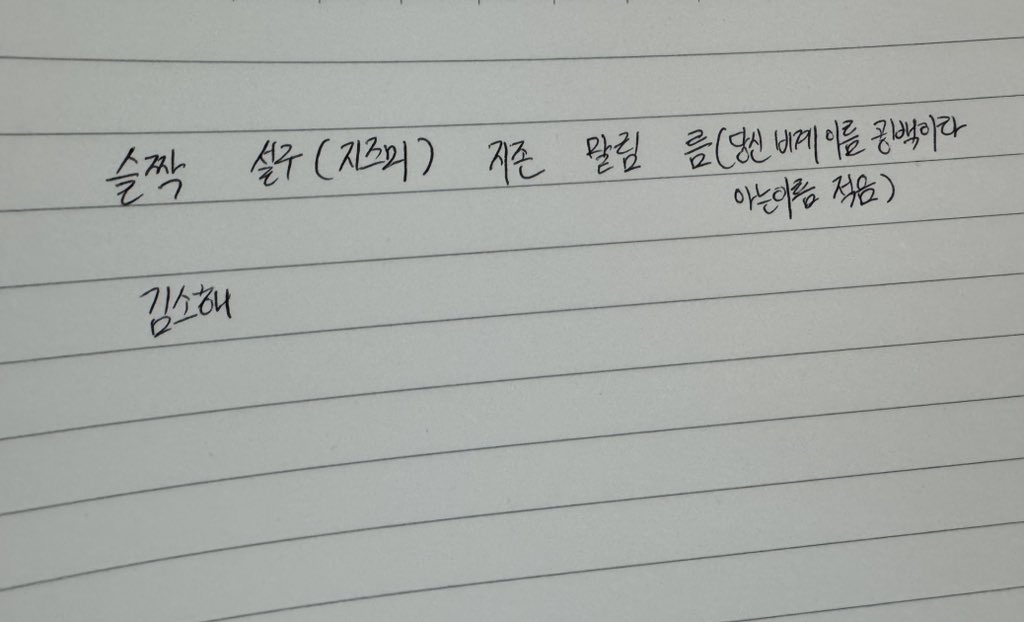 슬짝 설구 (지즈믜) 지존 말림 름 (당신 바께 이름 공백이라
아는이름 적음)
김소해